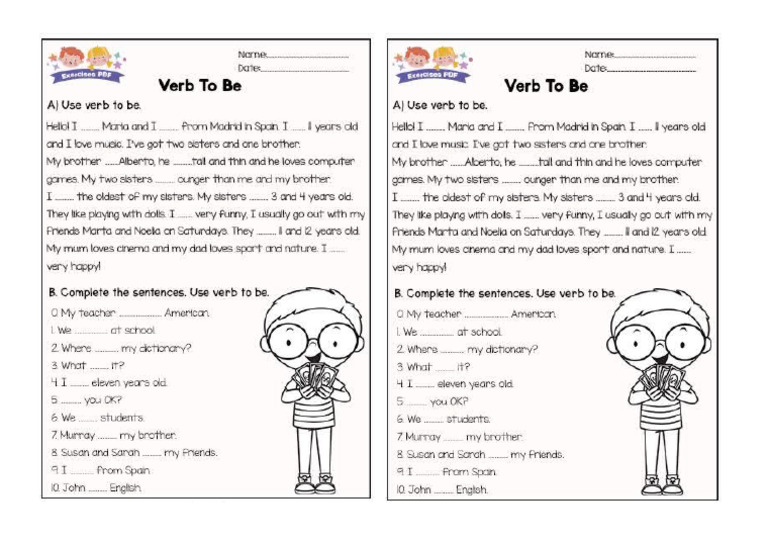 Exercises PDF
Name:..............................
Date:..............................
Verb To Be
A) Use verb to be.
Hello! I ........ Maria and I ........ from Madrid in Spain. I ....... 11 years old
and I love music. I've got two sisters and one brother.
My brother ......Alberto, he .........tall and thin and he loves computer
games. My two sisters ......... ounger than me and my brother.
I ......... the oldest of my sisters. My sisters ......... 3 and 4 years old.
They like playing with dolls. I ....... very funny, I usually go out with my
friends Marta and Noelia on Saturdays. They ......... 11 and 12 years old.
My mum loves cinema and my dad loves sport and nature. I .......
very happy!
B. Complete the sentences. Use verb to be.
0. My teacher ................. American.
1. We ............. at school.
2. Where .......... my dictionary?
3. What ........ it?
4. I ........ eleven years old.
5. ........ you OK?
6. We ........ students.
7. Murray ........ my brother.
8. Susan and Sarah ........ my friends.
9. I .......... from Spain.
10. John ........ English.
Exercises PDF
Name:..............................
Date:..............................
Verb To Be
A) Use verb to be.
Hello! I ........ Maria and I ........ from Madrid in Spain. I ....... 11 years old
and I love music. I've got two sisters and one brother.
My brother ......Alberto, he .........tall and thin and he loves computer
games. My two sisters ......... ounger than me and my brother.
I ......... the oldest of my sisters. My sisters ......... 3 and 4 years old.
They like playing with dolls. I ....... very funny, I usually go out with my
friends Marta and Noelia on Saturdays. They ......... 11 and 12 years old.
My mum loves cinema and my dad loves sport and nature. I .......
very happy!
B. Complete the sentences. Use verb to be.
0. My teacher ................. American.
1. We ............. at school.
2. Where .......... my dictionary?
3. What ........ it?
4. I ........ eleven years old.
5. ........ you OK?
6. We ........ students.
7. Murray ........ my brother.
8. Susan and Sarah ........ my friends.
9. I .......... from Spain.
10. John ........ English.